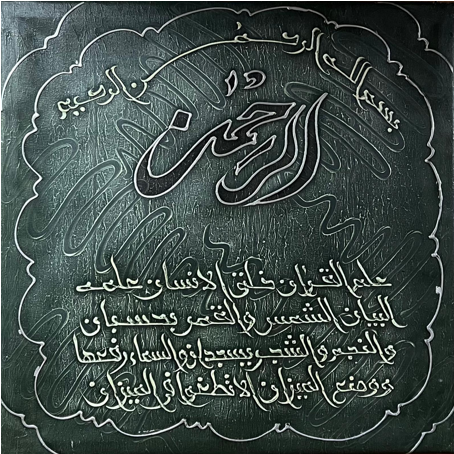 بسم الله الرحمن الرحيم
الرحمن
علم القران خلق الانسان علمه
البيان الشمس والقمر بحسبان
والنجم والشجر يسجدان والسماء رفعها
ووضع الميزان الا تطغوا في الميزان